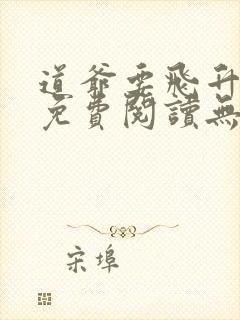 道爺要飛升
免費閱讀無
宋埠